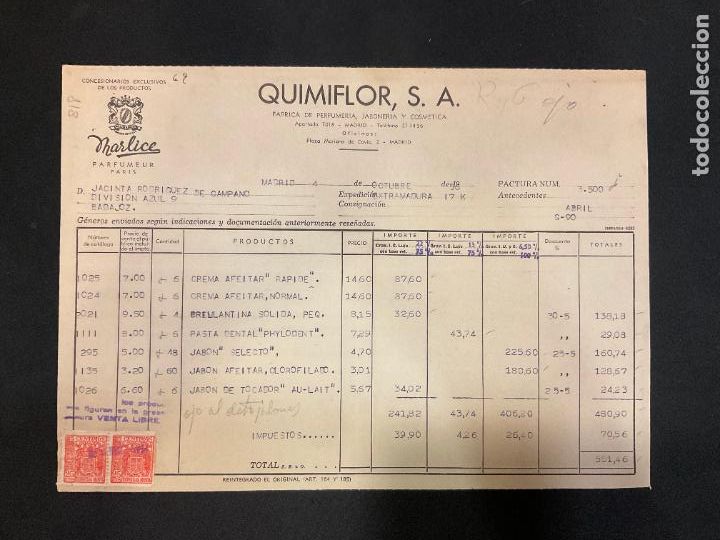 CONCESIONARIOS EXCLUSIVOS
DE LOS PRODUCTOS
QUIMIFLOR, S. A.
FABRICA DE PERFUMERIA, JABONERIA Y COSMETICA
Apartado 7018 - MADRID - Teléfono 27 1456
Oficinas:
Plaza Mariano de Cavia, 2 - MADRID
818
Marlice
PARFUMEUR
PARIS
MADRID 4 OCTUBRE de 19 58 FACTURA NUM. 3.500
D. JACINTA RODRIGUEZ DE CAMPANO Expedición EXTRAMADURA 17 K. Antecedentes
DIVISIÓN AZUL 9 Consignación ABRIL
BADAJOZ. S-90
Géneros enviados según indicaciones y documentación anteriormente reseñadas.
Número de catálogo Precio de venta al público incluido el impto. Cantidad PRODUCTOS PRECIO IMPORTE IMPORTE IMPORTE Descuento % TOTALES
1025 7.00 6 CREMA AFEITAR "RAPIDE". 14,60 87,60
1024 7.00 6 CREMA AFEITAR, NORMAL. 14,60 87,60
2021 9.50 4 BRILLANTINA SOLIDA, PEQ. 8,15 32,60 30-5 138,18
1111 5.00 6 PASTA DENTAL "PHYLODENT". 7,29 43,74 ,, 29,08
295 5.00 48 JABON "SELECTO", 4,70 225,60 25-5 160,74
1135 3.20 60 JABON AFEITAR, CLOROFILADO. 3,01 180,60 ,, 128,67
1026 6.60 6 JABON DE TOCADOR "AU-LAIT". 5,67 34,02 25-5 24,23
241,82 43,74 406,20 480,90
figuran en la
VENTA LIBRE
ojo al
IMPUESTOS...... 39,90 4,26 26,40 70,56
TOTAL S.E.u.O. .... 551,46
REINTEGRADO EL ORIGINAL (ART. 184 Y 185)
todocoleccion